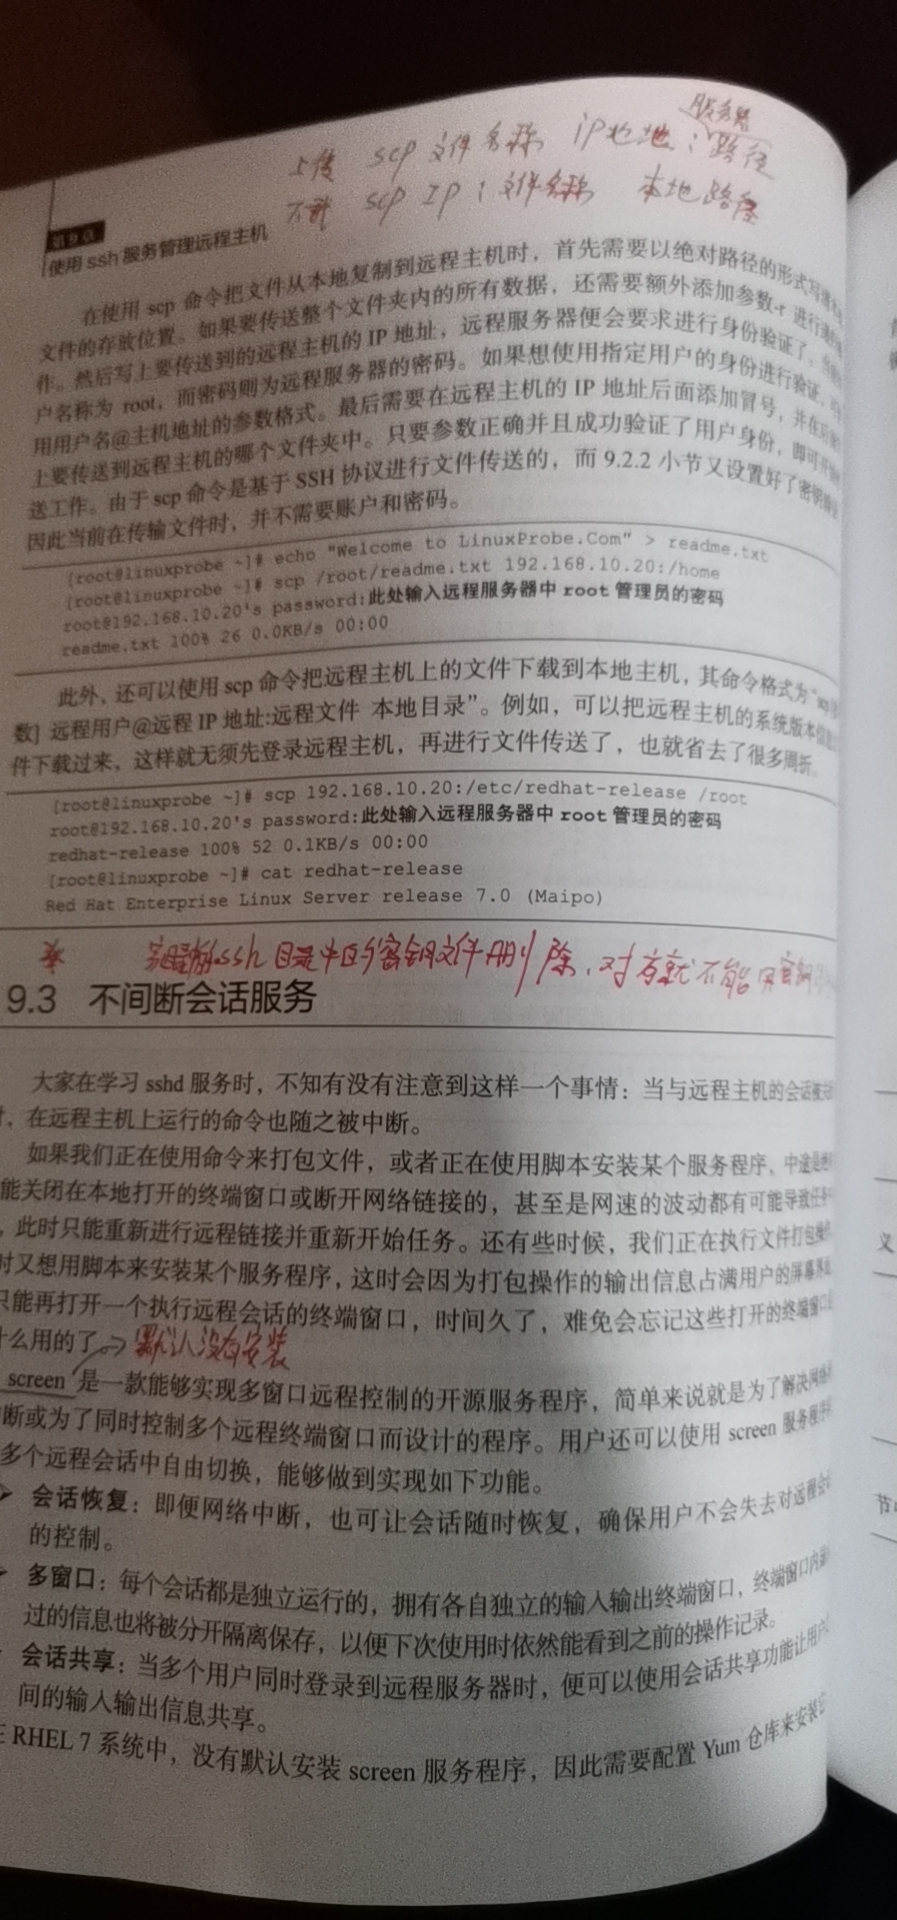 服务器
上传 scp 文件名称 iP地址：路径
scp IP：文件名称 本地路径
第9章
使用ssh服务管理远程主机
在使用 scp 命令把文件从本地复制到远程主机时，首先需要以绝对路径的形式写清本
文件的存放位置。如果要传送整个文件夹内的所有数据，还需要额外添加参数-r 进行
作。然后写上要传送到的远程主机的 IP 地址，远程服务器便会要求进行身份验证了。
户名称为 root，而密码则为远程服务器的密码。如果想使用指定用户的身份进行验证，
用用户名@主机地址的参数格式。最后需要在远程主机的 IP 地址后面添加冒号，并在后
上要传送到远程主机的哪个文件夹中。只要参数正确并且成功验证了用户身份，即可开
送工作。由于 scp 命令是基于 SSH 协议进行文件传送的，而 9.2.2 小节又设置好了密钥
因此当前在传输文件时，并不需要账户和密码。
[root@linuxprobe ~]# echo "Welcome to LinuxProbe.Com" > readme.txt
[root@linuxprobe ~]# scp /root/readme.txt 192.168.10.20:/home
root@192.168.10.20's password:此处输入远程服务器中 root 管理员的密码
readme.txt 100% 26 0.0KB/s 00:00
此外，还可以使用 scp 命令把远程主机上的文件下载到本地主机，其命令格式为“scp
数] 远程用户@远程 IP 地址:远程文件 本地目录”。例如，可以把远程主机的系统版本信
件下载过来，这样就无须先登录远程主机，再进行文件传送了，也就省去了很多周折。
[root@linuxprobe ~]# scp 192.168.10.20:/etc/redhat-release /root
root@192.168.10.20's password:此处输入远程服务器中 root 管理员的密码
redhat-release 100% 52 0.1KB/s 00:00
[root@linuxprobe ~]# cat redhat-release
Red Hat Enterprise Linux Server release 7.0 (Maipo)
ssh 目录中的密钥文件删除，对方就不能用密钥
9.3 不间断会话服务
大家在学习 sshd 服务时，不知有没有注意到这样一个事情：当与远程主机的会话被
，在远程主机上运行的命令也随之被中断。
如果我们正在使用命令来打包文件，或者正在使用脚本安装某个服务程序，中途是
能关闭在本地打开的终端窗口或断开网络链接的，甚至是网速的波动都有可能导致任务
，此时只能重新进行远程链接并重新开始任务。还有些时候，我们正在执行文件打包
时又想用脚本来安装某个服务程序，这时会因为打包操作的输出信息占满用户的屏幕界
只能再打开一个执行远程会话的终端窗口，时间久了，难免会忘记这些打开的终端窗口
什么用的了。
默认没有安装
screen 是一款能够实现多窗口远程控制的开源服务程序，简单来说就是为了解决网络
断或为了同时控制多个远程终端窗口而设计的程序。用户还可以使用 screen 服务程序
多个远程会话中自由切换，能够做到实现如下功能。
会话恢复：即便网络中断，也可让会话随时恢复，确保用户不会失去对远程会
的控制。
多窗口：每个会话都是独立运行的，拥有各自独立的输入输出终端窗口，终端窗口内
过的信息也将被分开隔离保存，以便下次使用时依然能看到之前的操作记录。
会话共享：当多个用户同时登录到远程服务器时，便可以使用会话共享功能让用户
间的输入输出信息共享。
RHEL 7 系统中，没有默认安装 screen 服务程序，因此需要配置 Yum 仓库来安装
义
节